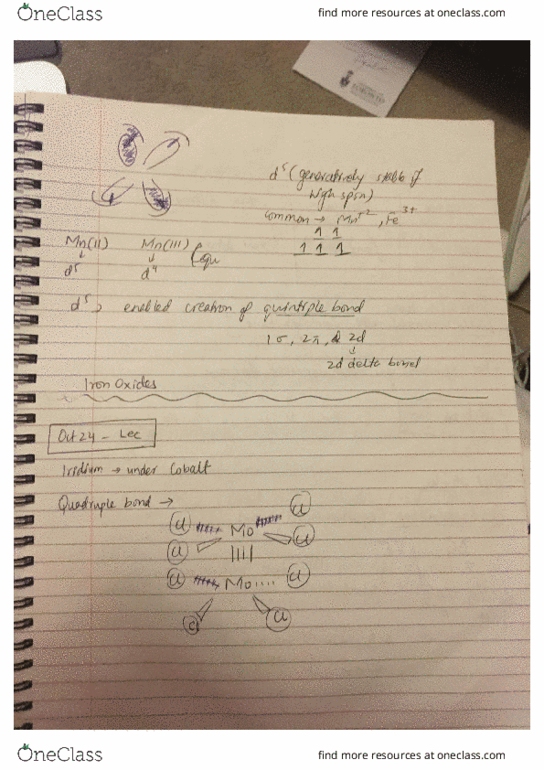 OneClass
find more resources at oneclass.com
d⁵ (generatively stable if
high spin)
Common → Mn⁺², Fe³⁺
1 1
1 1 1
Mn(II) Mn(III)
↓ ↓
d⁵ d⁴
d⁵, enabled creation of quintiple bond
1σ, 2π, & 2d
↓
2d delta bond
Iron Oxides
Oct 24 - Lec
Iridium → under Cobalt
Quadruple bond →
Cl Mo Cl
Cl Cl
Cl Mo Cl
Cl Cl
OneClass
find more resources at oneclass.com